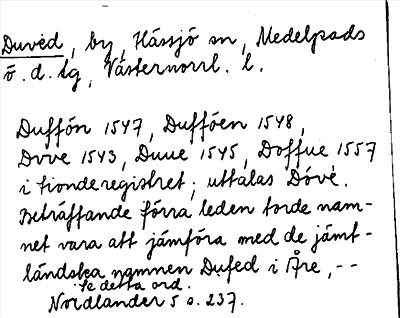 Duvèd, by, Hässjö sn, Medelpads
ö. d. tg, Västernorrl. l.
Duffón 1547, Dufföen 1548,
Dvve 1543, Duue 1545, Doffue 1557
i tionderegistret; uttalas Dóvè.
Beträffande förra leden torde nam-
net vara att jämföra med de jämt-
ländska namnen Dufed i Åre, --
Se detta ord.
Nordlander 5 s. 237.